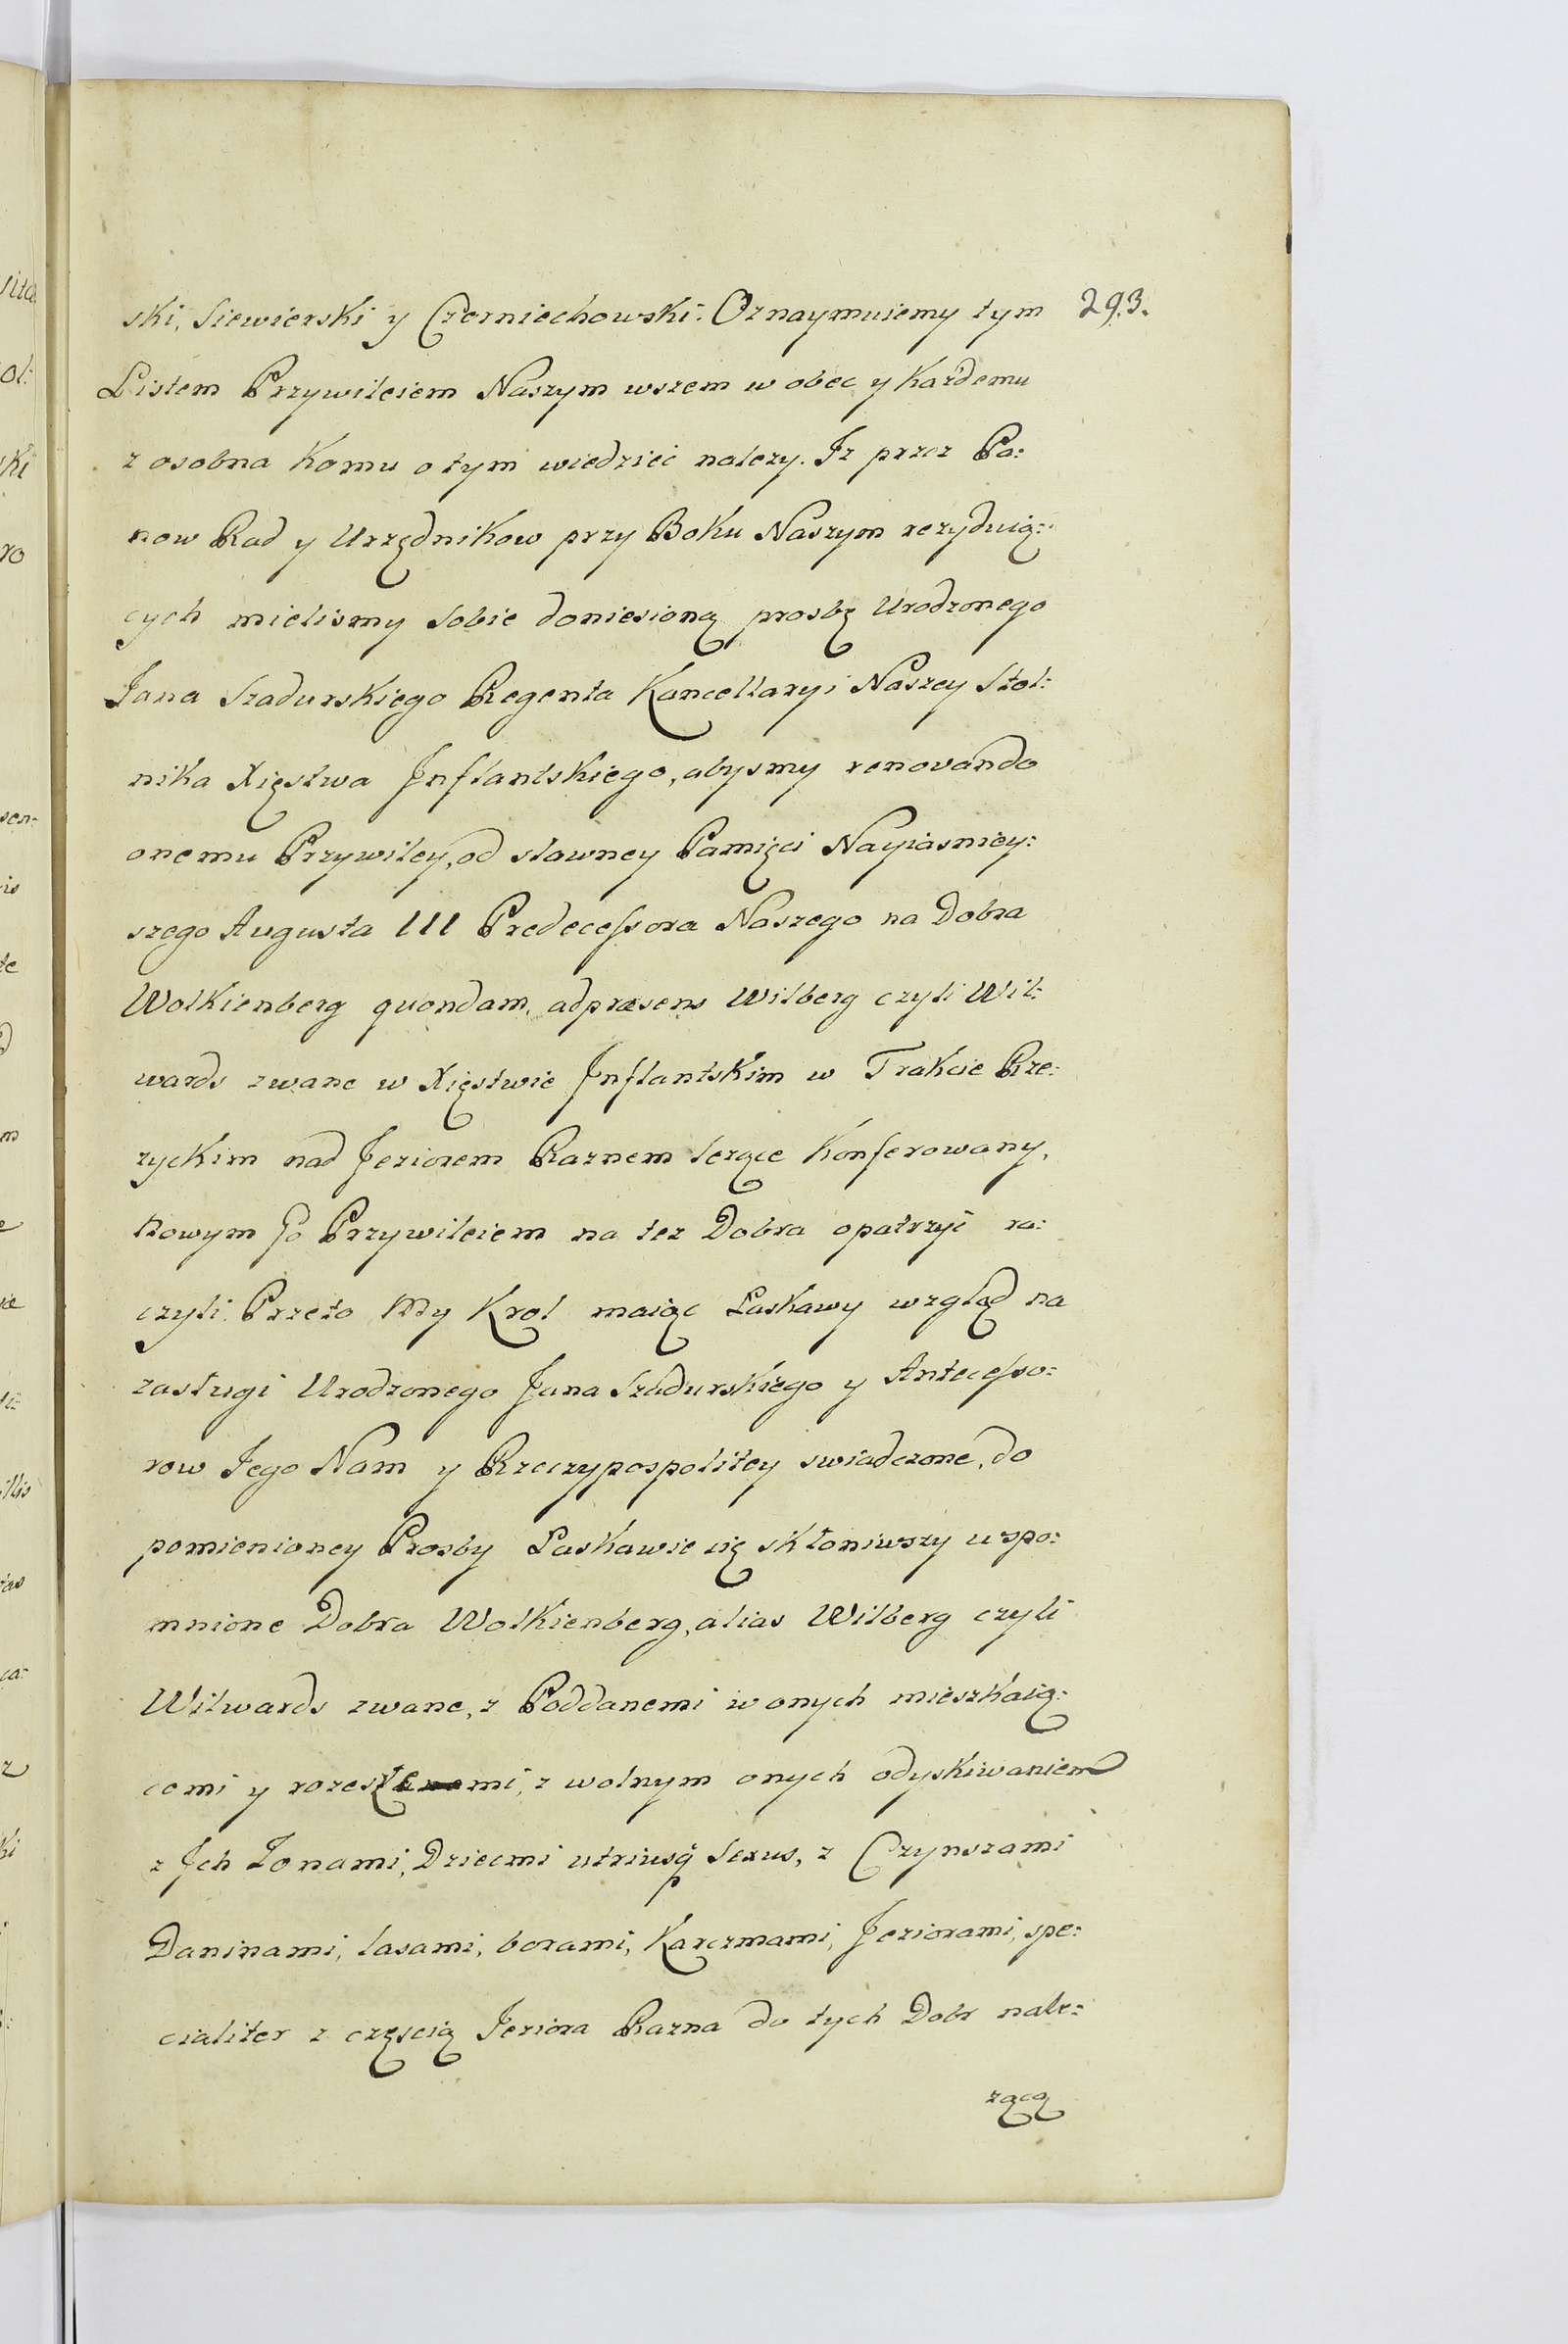 293.
ski, Siewierski y Czerniechowski. Oznaymuiemy tym
Listem Przywileiem Naszym wszem w obec y Każdemu
z osobna Komu o tym wiedzieć nalezy. Iz przez Pa:
now Rad y Urzędnikow przy Boku Naszym rezyduią:
cych mielismy sobie doniesioną prosbę Urodzonego
Jana Szadurskiego Regenta Kancellaryi Naszey Stol:
nika Xięstwa Inflantskiego, abysmy renovando
onemu Przywiley, od sławney Pamięci Nayiasniey:
szego Augusta III Predecessora Naszego na Dobra
Wolkienberg quondam, adpræsens Wilberg czyli Wil:
wards zwane w Xięstwie Inflantskim w Trakcie Rze:
zyckim nad Jeziorem Raznem lezące Konferowany,
Nowym Go Przywileiem na tez Dobra opatrzyć ra:
czyli. Przeto My Krol maiąc Łaskawy wzgląd na
zasługi Urodzonego Jana Szadurskiego y Antecesso:
row Jego Nam y Rzeczypospolitey swiadczone, do
pomienioney Prosby Łaskawie się skłoniwszy wspo:
mnione Dobra Wolkienberg, alias Wilberg czyli
Wilwards zwane, z Poddanemi w onych mieszkaią:
cemi y rozeszłemi, z wolnym onych odyskiwaniem
z Ich Zonami, Dziecmi utriusq̃ Sexus, z Czynszami
Daninami, lasami, borami, Karczmami, Jeziorami, spe:
cialiter z częscią Jeziora Razna do tych Dobr nale:
zącą